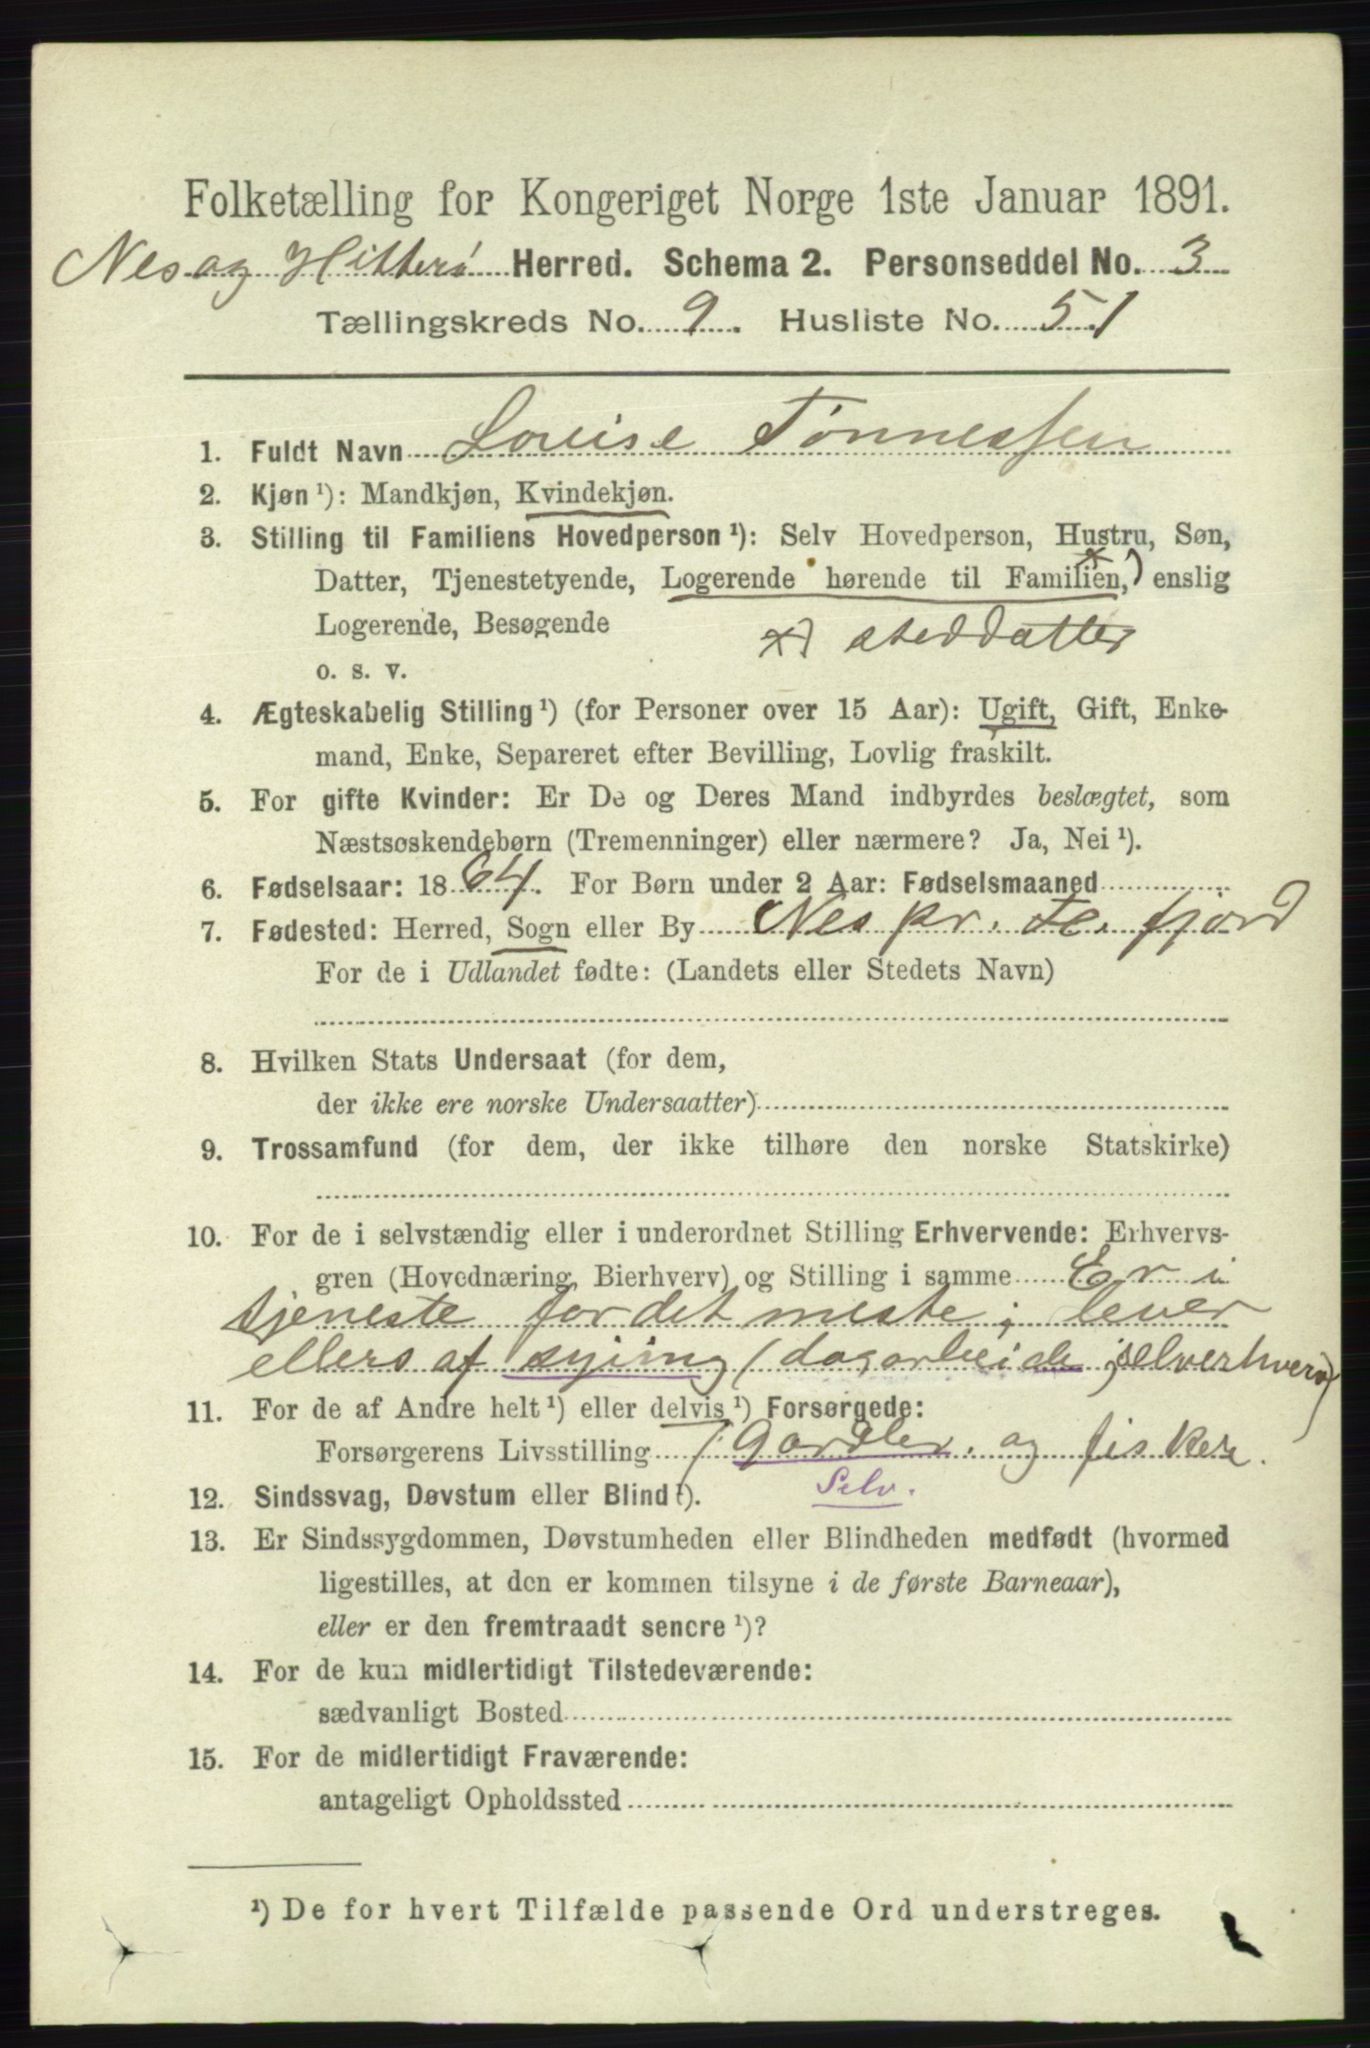 Folketælling for Kongeriget Norge 1ste Januar 1891.
Nes og Hitterø Herred. Schema 2. Personseddel No. 3
Tællingskreds No. 9. Husliste No. 51
1. Fuldt Navn Louise Tønnessen
2. Kjøn ¹): Mandkjøn, Kvindekjøn.
3. Stilling til Familiens Hovedperson ¹): Selv Hovedperson, Hustru, Søn,
Datter, Tjenestetyende, Logerende hørende til Familien, *) enslig
Logerende, Besøgende *) steddatter
o. s. v.
4. Ægteskabelig Stilling ¹) (for Personer over 15 Aar): Ugift, Gift, Enke-
mand, Enke, Separeret efter Bevilling, Lovlig fraskilt.
5. For gifte Kvinder: Er De og Deres Mand indbyrdes beslægtet, som
Næstsøskendebørn (Tremenninger) eller nærmere? Ja, Nei ¹).
6. Fødselsaar: 1864. For Børn under 2 Aar: Fødselsmaaned
7. Fødested: Herred, Sogn eller By Nes pr. Fe.fjord
For de i Udlandet fødte: (Landets eller Stedets Navn)
8. Hvilken Stats Undersaat (for dem,
der ikke ere norske Undersaatter)
9. Trossamfund (for dem, der ikke tilhøre den norske Statskirke)
10. For de i selvstændig eller i underordnet Stilling Erhvervende: Erhvervs-
gren (Hovednæring, Bierhverv) og Stilling i samme Er i
tjeneste for det meste; lever
ellers af syning (dagarbeide, selverhverv)
11. For de af Andre helt ¹) eller delvis ¹) Forsørgede:
Forsørgerens Livsstilling Gardbr. og fisker.
12. Sindssvag, Døvstum eller Blind ¹). Selv.
13. Er Sindssygdommen, Døvstumheden eller Blindheden medfødt (hvormed
ligestilles, at den er kommen tilsyne i de første Barneaar),
eller er den fremtraadt senere ¹)?
14. For de kun midlertidigt Tilstedeværende:
sædvanligt Bosted
15. For de midlertidigt Fraværende:
antageligt Opholdssted
¹) De for hvert Tilfælde passende Ord understreges.